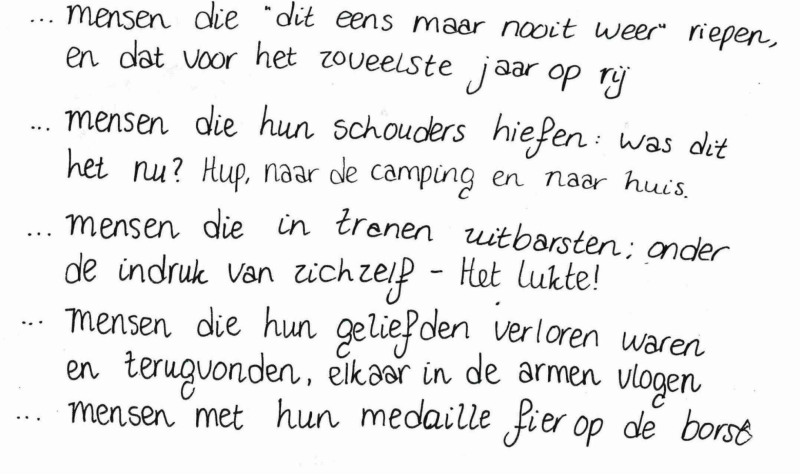 ... mensen die "dit eens maar nooit weer" riepen,
en dat voor het zoveelste jaar op rij
... mensen die hun schouders hiefen: was dit
het nu? Hup, naar de camping en naar huis.
... mensen die in tranen uitbarsten; onder
de indruk van zichzelf - Het lukte!
... mensen die hun geliefden verloren waren
en terugvonden, elkaar in de armen vlogen
... mensen met hun medaille fier op de borst